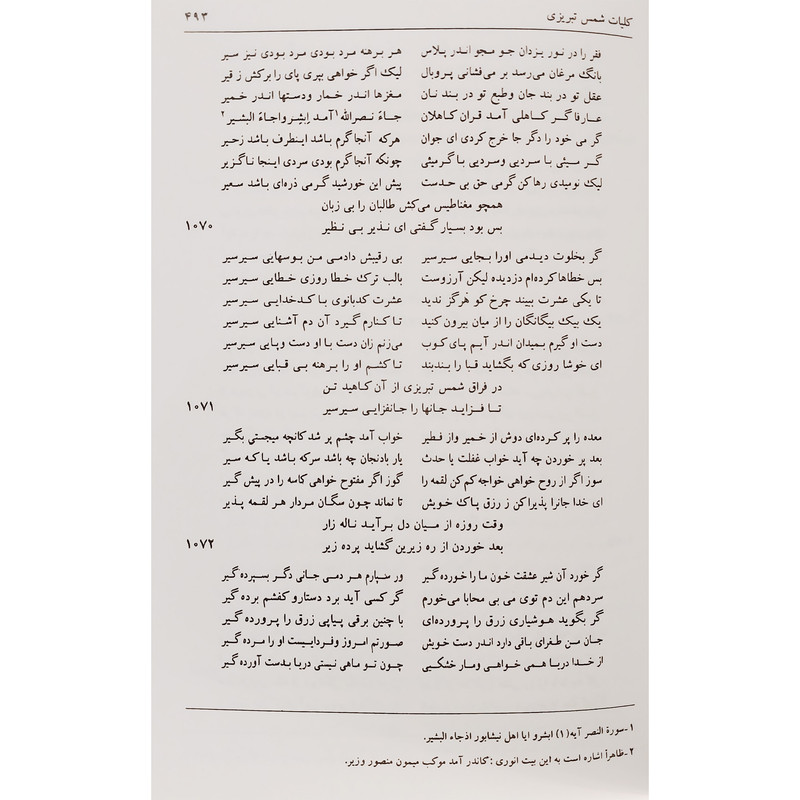 کلیات شمس تبریزی ۴۹۳
فقر را در نور یزدان جو مجو اندر پلاس هر برهنه مرد بودی مرد بودی نیز سیر
بانگ مرغان می‌رسد بر می‌فشانی پروبال لیک اگر خواهی بپری پای را برکش ز قیر
عقل تو در بند جان وطبع تو در بند نان مغزها اندر خمار ودستها اندر خمیر
عارفا گر کاهلی آمد قران کاهلان جاءَ نصرالله۱ آمد اِبشِر واجاءَ البشیر۲
گر می خود را دگر جا خرج کردی ای جوان هرکه آنجا گرم باشد اینطرف باشد زحیر
گر میئی با سردیی وسردیی با گرمیئی چونکه آنجا گرم بودی سردی اینجا ناگزیر
لیک نومیدی رها کن گرمی حق بی حدست پیش این خورشید گرمی ذره‌ای باشد سعیر
همچو مغناطیس می‌کش طالبان را بی زبان
بس بود بسیار گفتی ای نذیر بی نظیر ۱۰۷۰
گر بخلوت دیدمی اورا بجایی سیرسیر بی رقیبش دادمی من بوسهایی سیرسیر
بس خطاها کرده‌ام دزدیده لیکن آرزوست بالب ترک خطا روزی خطایی سیرسیر
تا یکی عشرت ببیند چرخ کو هرگز ندید عشرت کدبانوی با کدخدایی سیرسیر
یک بیک بیگانگان را از میان بیرون کنید تا کنارم گیرد آن دم آشنایی سیرسیر
دست او گیرم بمیدان اندر آیم پای کوب می‌زنم زان دست با او دست وپایی سیرسیر
ای خوشا روزی که بگشاید قبا را بندبند تا کشم او را برهنه بی قبایی سیرسیر
در فراق شمس تبریزی از آن کاهید تن
تا فزاید جانها را جانفزایی سیرسیر ۱۰۷۱
معده را پر کرده‌ای دوش از خمیر واز فطیر خواب آمد چشم پر شد کانچه میجستی بگیر
بعد پر خوردن چه آید خواب غفلت یا حدث یار بادنجان چه باشد سرکه باشد یا که سیر
سوز اگر از روح خواهی خواجه کم کن لقمه را گوز اگر مفتوح خواهی کاسه را در پیش گیر
ای خدا جانرا پذیرا کن ز رزق پاک خویش تا نماند چون سگان مردار هر لقمه پذیر
وقت روزه از میان دل برآید ناله زار
بعد خوردن از ره زیرین گشاید پرده زیر ۱۰۷۲
گر خورد آن شیر عشقت خون ما را خورده گیر ور سپارم هر دمی جانی دگر بسپرده گیر
سردهم این دم توی می بی محابا می‌خورم گر کسی آید برد دستارو کفشم برده گیر
گر بگوید هوشیاری زرق را پرورده‌ای با چنین برقی پیاپی زرق را پرورده گیر
جان من طغرای باقی دارد اندر دست خویش صورتم امروز وفرداییست او را مرده گیر
از خدا دریا همی خواهی ومار خشکیی چون تو ماهی نیستی دریا بدست آورده گیر
۱-سورة النصر آیه(۱) ابشرو ایا اهل نیشابور اذجاء البشیر.
۲-ظاهراً اشاره است به این بیت انوری : کاندر آمد موکب میمون منصور وزیر.